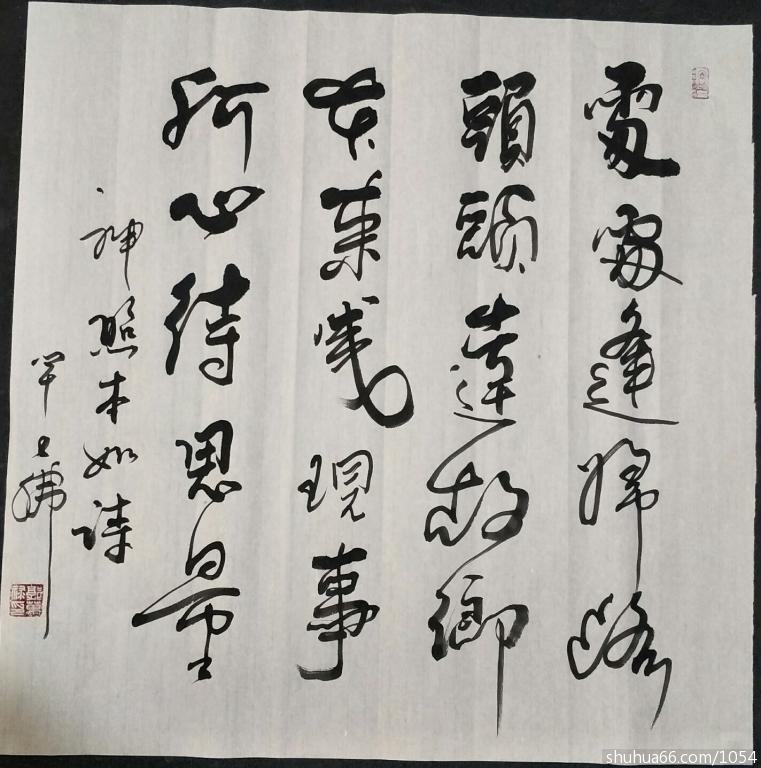 處處逢歸路
頭頭達故鄉
本來成現事
何必待思量
神照本如诗
shuhua66.com/1054